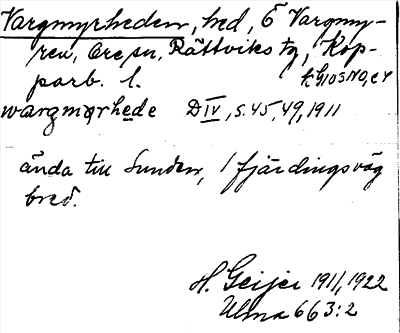 Vargmyrheden, hed, Ö Vargmy-
ren, Ore sn, Rättviks tg, Kop-
parb. l.
wargmyrhede D IV, s. 45, 49, 1911
ända till Sunden, 1 fjärdingsväg
bred.
H. Geijer 1911, 1922
Ulma 663:2